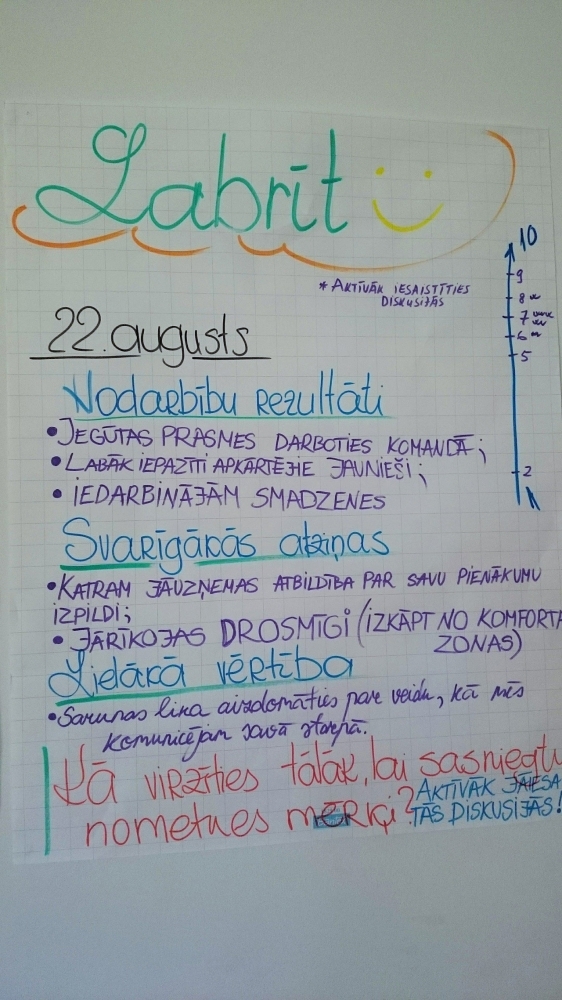 Labrīt
10
9
8
7
6
5
2
* AKTĪVĀK IESAISTĪTIES
DISKUSIJĀS
22. augusts
Nodarbību rezultāti
• IEGŪTAS PRASMES DARBOTIES KOMANDĀ;
• LABĀK IEPAZĪTI APKĀRTĒJIE JAUNIEŠI;
• IEDARBINĀJĀM SMADZENES
Svarīgākās atziņas
• KATRAM JĀUZŅEMAS ATBILDĪBA PAR SAVU PIENĀKUMU
IZPILDI;
• JĀRĪKOJAS DROSMĪGI (IZKĀPT NO KOMFORTA
ZONAS)
Lielākā vērtība
• Sarunas lika aizdomāties par veidu, kā mēs
komunicējam savā starpā.
Kā virzīties tālāk, lai sasniegtu
nometnes mērķi?
AKTĪVĀK JĀIESA
TĀS DISKUSIJĀS!